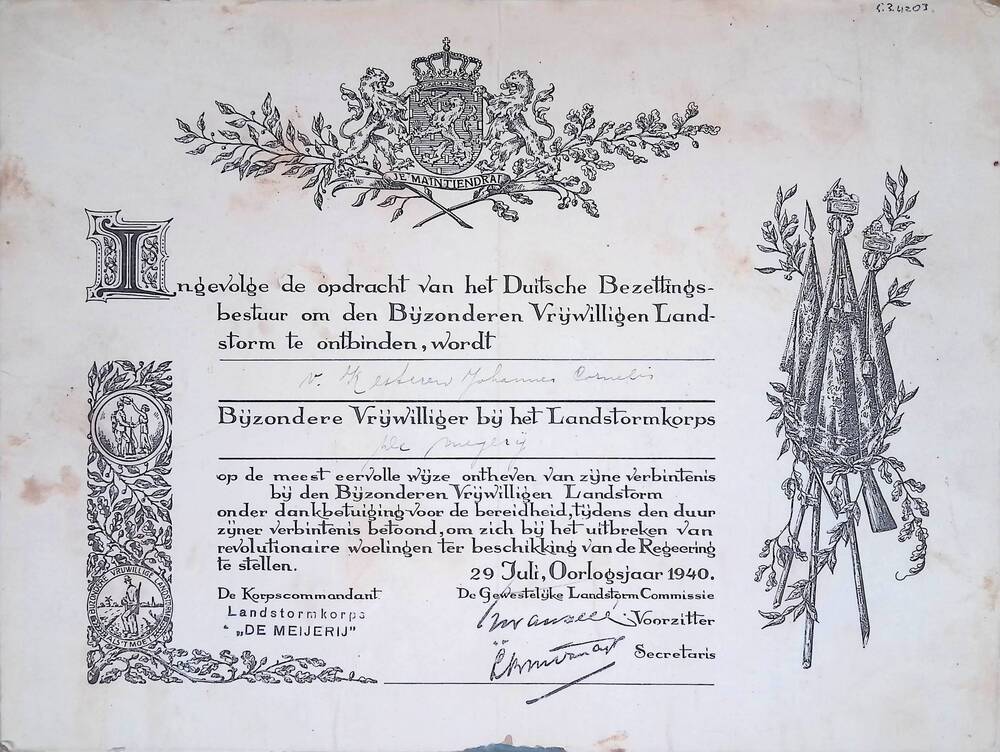 5.3.4203.
JE MAINTIENDRAI
Ingevolge de opdracht van het Duitsche Bezettings-
bestuur om den Bijzonderen Vrijwilligen Land-
storm te ontbinden, wordt
v. Kesteren Johannes Cornelis
Bijzondere Vrijwilliger bij het Landstormkorps
de meijerij
op de meest eervolle wijze ontheven van zijne verbintenis
bij den Bijzonderen Vrijwilligen Landstorm
onder dankbetuiging voor de bereidheid, tijdens den duur
zijner verbintenis betoond, om zich bij het uitbreken van
revolutionaire woelingen ter beschikking van de Regeering
te stellen.
29 Juli, Oorlogsjaar 1940.
De Korpscommandant
De Gewestelijke Landstorm Commissie
Landstormkorps
"DE MEIJERIJ"
Voorzitter
Secretaris
BIJZONDERE VRIJWILLIGE LANDSTORM
ALS 'T MOET